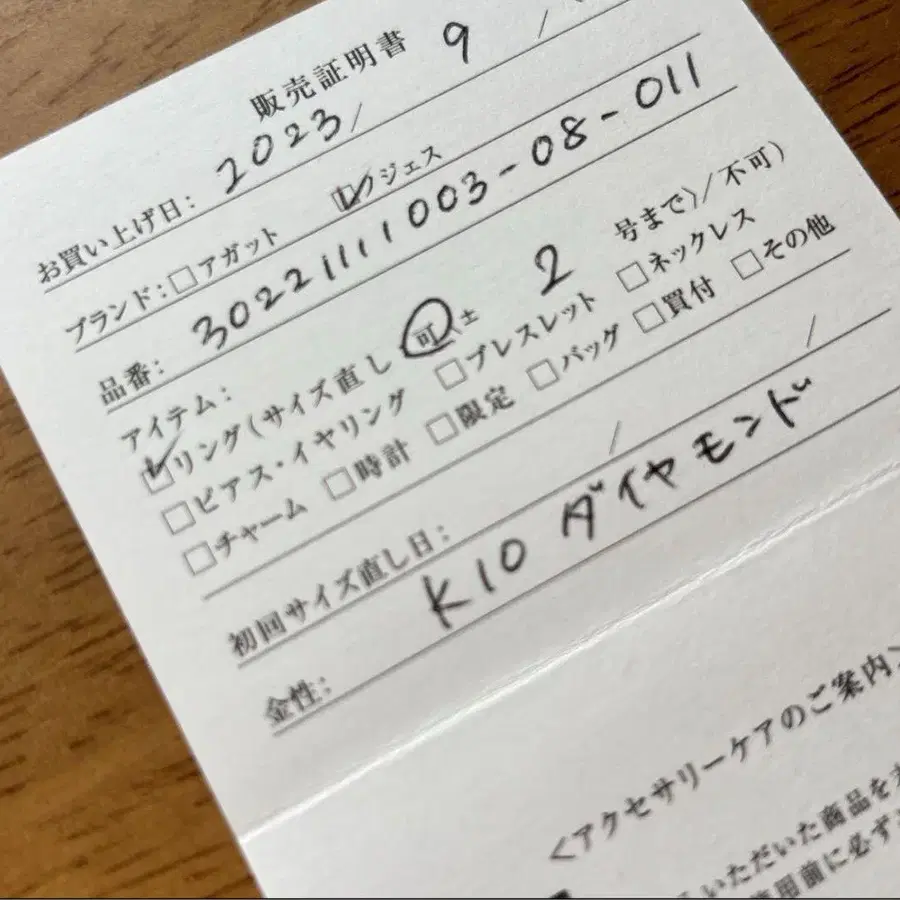 販売証明書
お買い上げ日: 2023/ 9 /
ブランド: □アガット ☑ノジェス
品番: 30221111003-08-011
アイテム:
☑リング(サイズ直し 可〈± 2 号まで〉/不可)
□ピアス・イヤリング □ブレスレット □ネックレス
□チャーム □時計 □限定 □バッグ □買付 □その他
初回サイズ直し日: / /
金性: K10 ダイヤモンド
<アクセサリーケアのご案内>
いただいた商品を
使用前に必ず